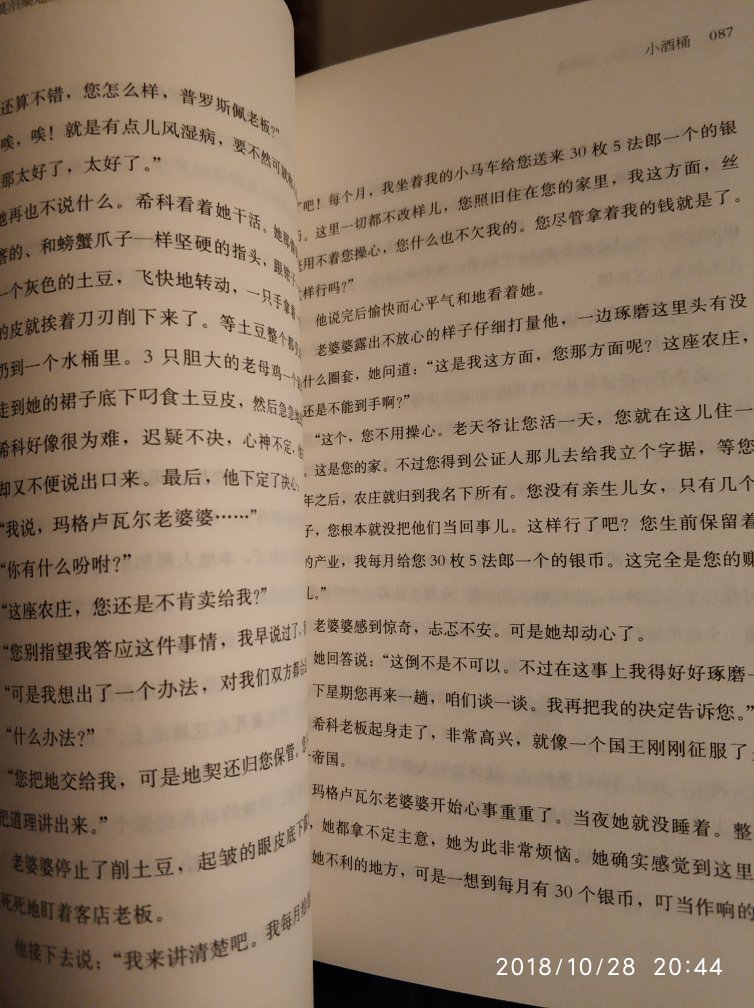 还算不错，您怎么样，普罗斯佩老板？”
唉，唉！就是有点儿风湿病，要不然可就
那太好了，太好了。”
她再也不说什么。希科看着她干活。她那
磨的、和螃蟹爪子一样坚硬的指头，跟钳子
一个灰色的土豆，飞快地转动，一只手拿着
的皮就挨着刀刃削下来了。等土豆整个都
扔到一个水桶里。3 只胆大的老母鸡一个
走到她的裙子底下叼食土豆皮，然后急急
希科好像很为难，迟疑不决，心神不定，
却又不便说出口来。最后，他下定了决心
“我说，玛格卢瓦尔老婆婆……”
“你有什么吩咐？”
“这座农庄，您还是不肯卖给我？”
“您别指望我答应这件事情，我早说过了，
“可是我想出了一个办法，对我们双方都
“什么办法？”
“您把地交给我，可是地契还归您保管。
把道理讲出来。”
老婆婆停止了削土豆，起皱的眼皮底下
死死地盯着客店老板。
他接下去说：“我来讲清楚吧。我每月给
小酒桶 087
吧！每个月，我坐着我的小马车给您送来 30 枚 5 法郎一个的银
。这里一切都不改样儿，您照旧住在您的家里，我这方面，丝
用不着您操心，您什么也不欠我的。您尽管拿着我的钱就是了。
样行吗？”
他说完后愉快而心平气和地看着她。
老婆婆露出不放心的样子仔细打量他，一边琢磨这里头有没
什么圈套，她问道：“这是我这方面，您那方面呢？这座农庄，
还是不能到手啊？”
“这个，您不用操心。老天爷让您活一天，您就在这儿住一
。这是您的家。不过您得到公证人那儿去给我立个字据，等您
年之后，农庄就归到我名下所有。您没有亲生儿女，只有几个
子，您根本就没把他们当回事儿。这样行了吧？您生前保留着
的产业，我每月给您 30 枚 5 法郎一个的银币。这完全是您的赚
儿。”
老婆婆感到惊奇，忐忑不安。可是她却动心了。
她回答说：“这倒不是不可以。不过在这事上我得好好琢磨
下星期您再来一趟，咱们谈一谈。我再把我的决定告诉您。”
希科老板起身走了，非常高兴，就像一个国王刚刚征服了
帝国。
玛格卢瓦尔老婆婆开始心事重重了。当夜她就没睡着。整
，她都拿不定主意，她为此非常烦恼。她确实感觉到这里
她不利的地方，可是一想到每月有 30 个银币，叮当作响的
2018/10/28 20:44